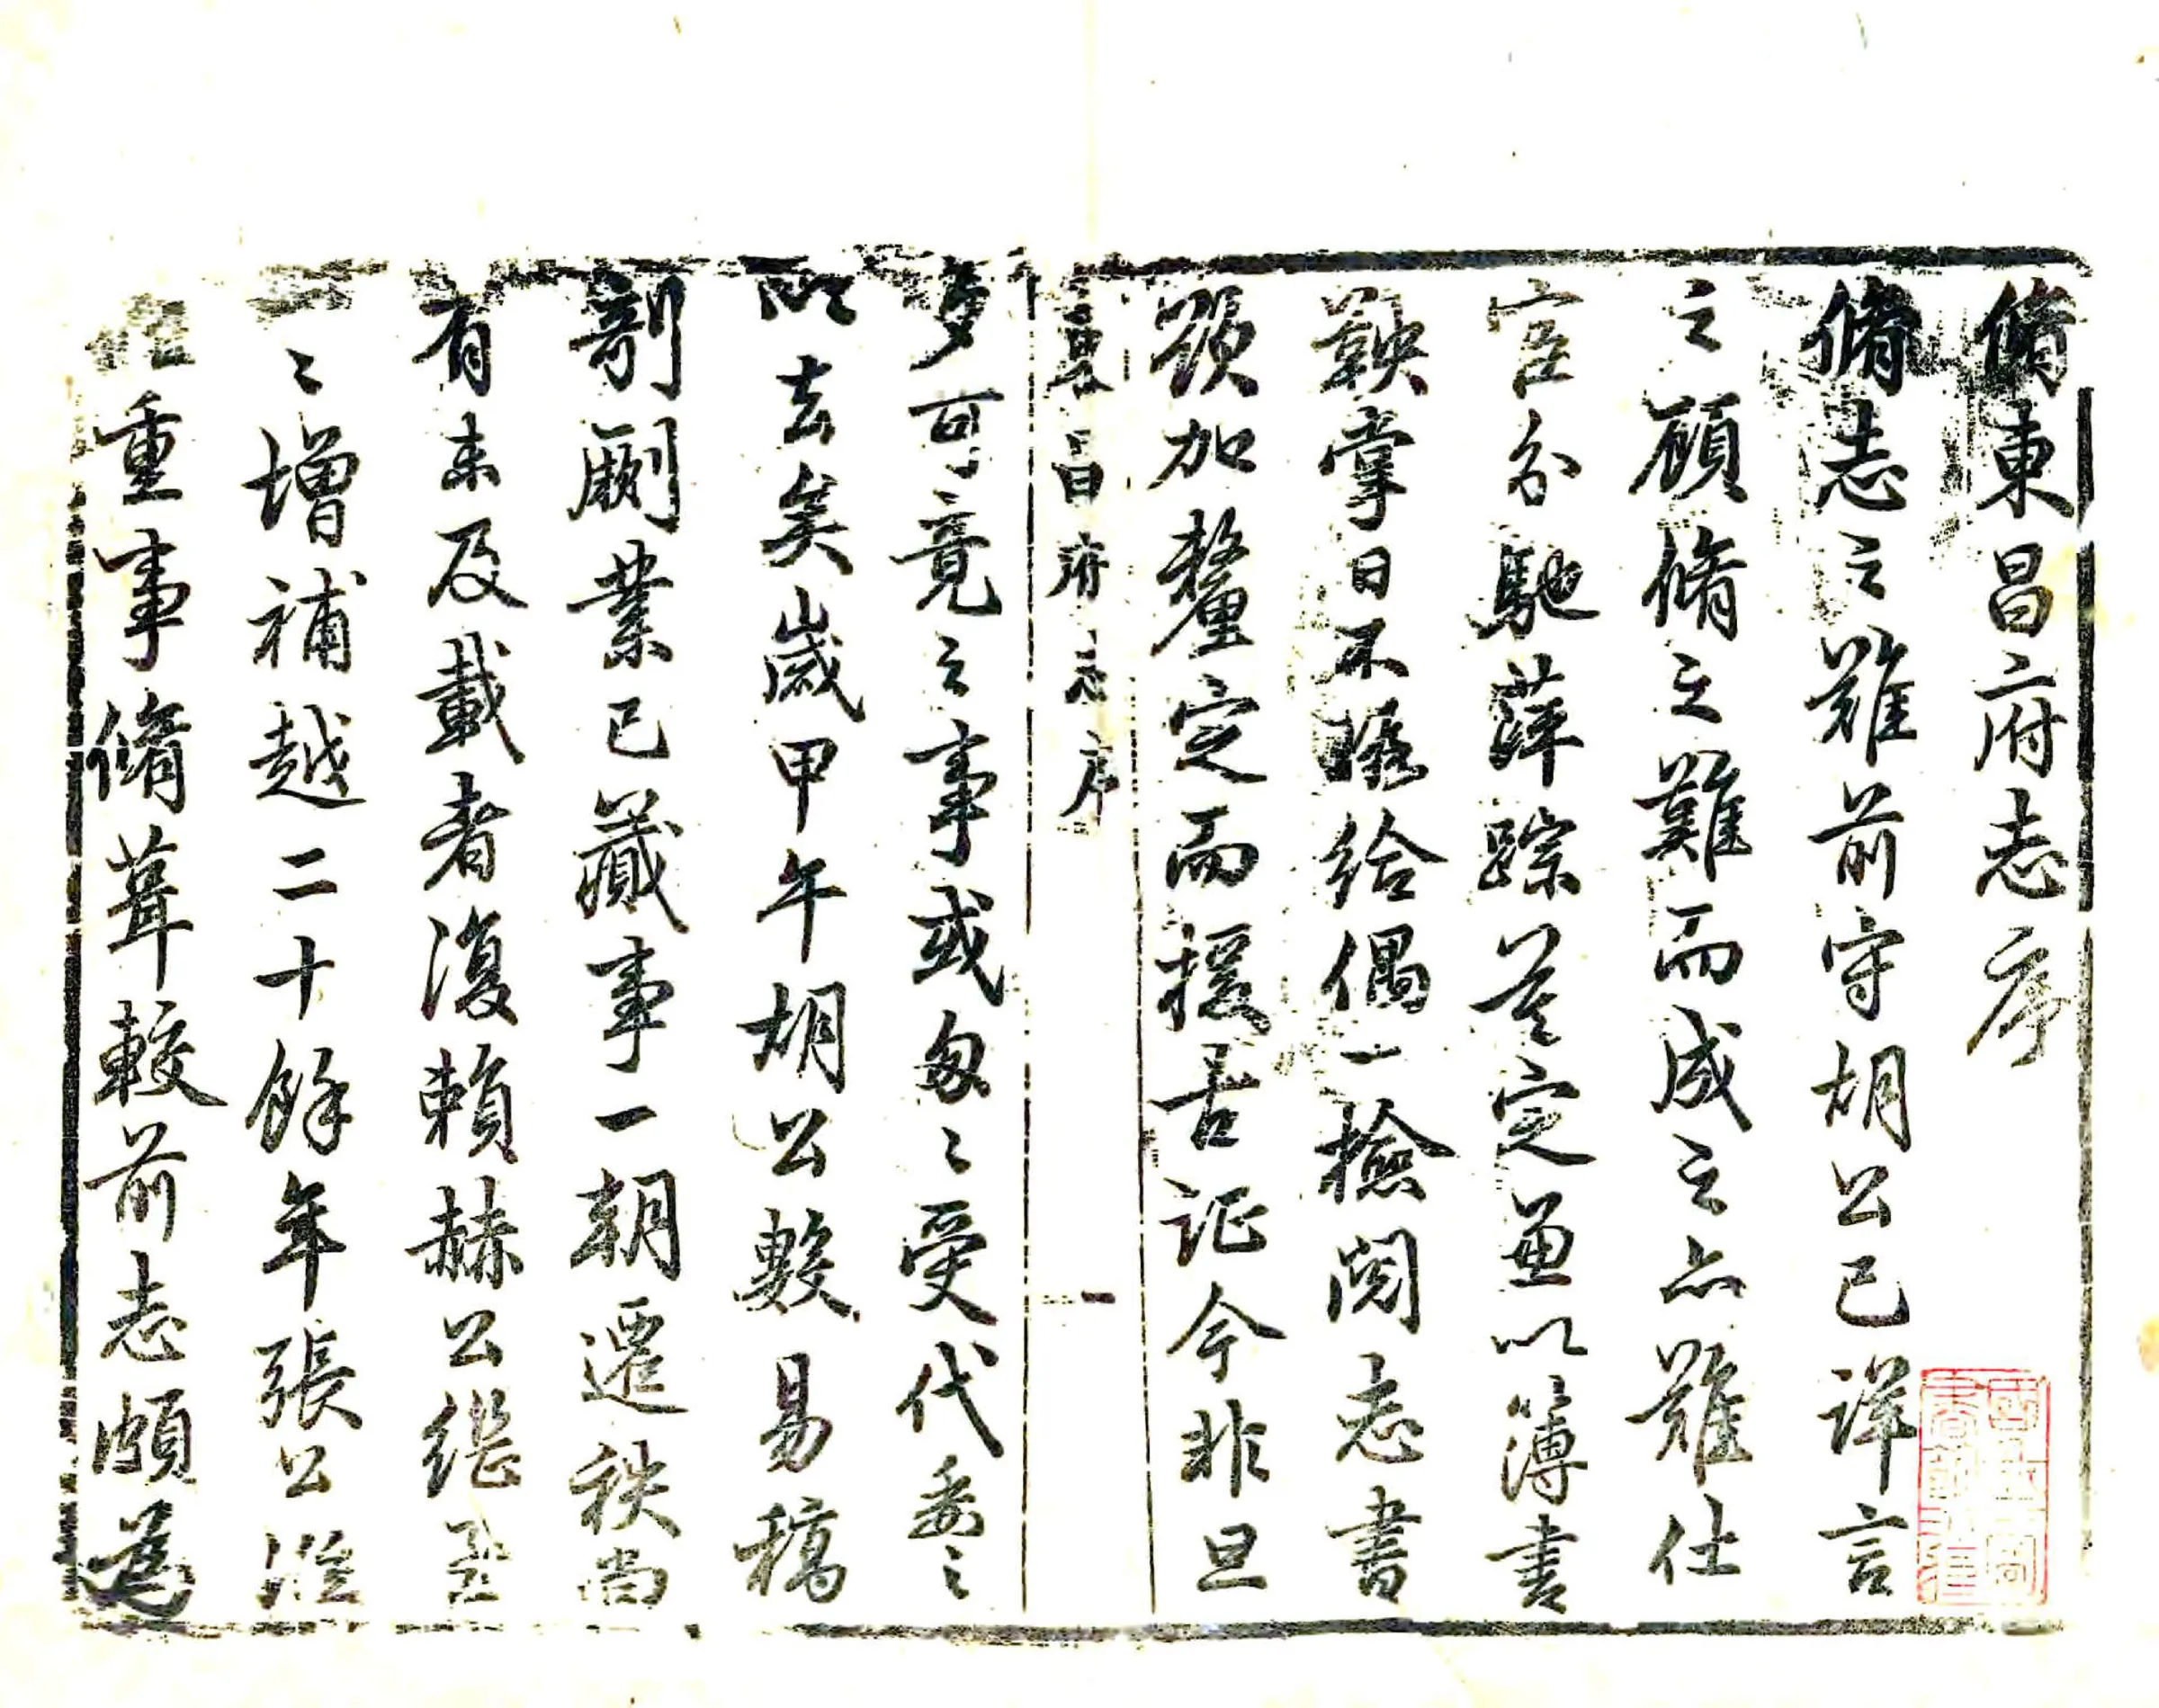 脩東昌府志序
脩志之難前守胡公已詳言
之顧脩之難而成之亦難仕
宦分馳萍踪莫定兼以簿書
鞅掌日不暇給偶一撿閱志書
欲加釐定而援古証今非旦
東昌府志序
一
夕可竟之事或匆〻受代委之
而去矣歲甲午胡公數易稿
剞劂業已蕆事一朝遷秩尚
有未及載者復賴赫公繼
之增補越二十餘年張公
重事脩葺較前志頗為